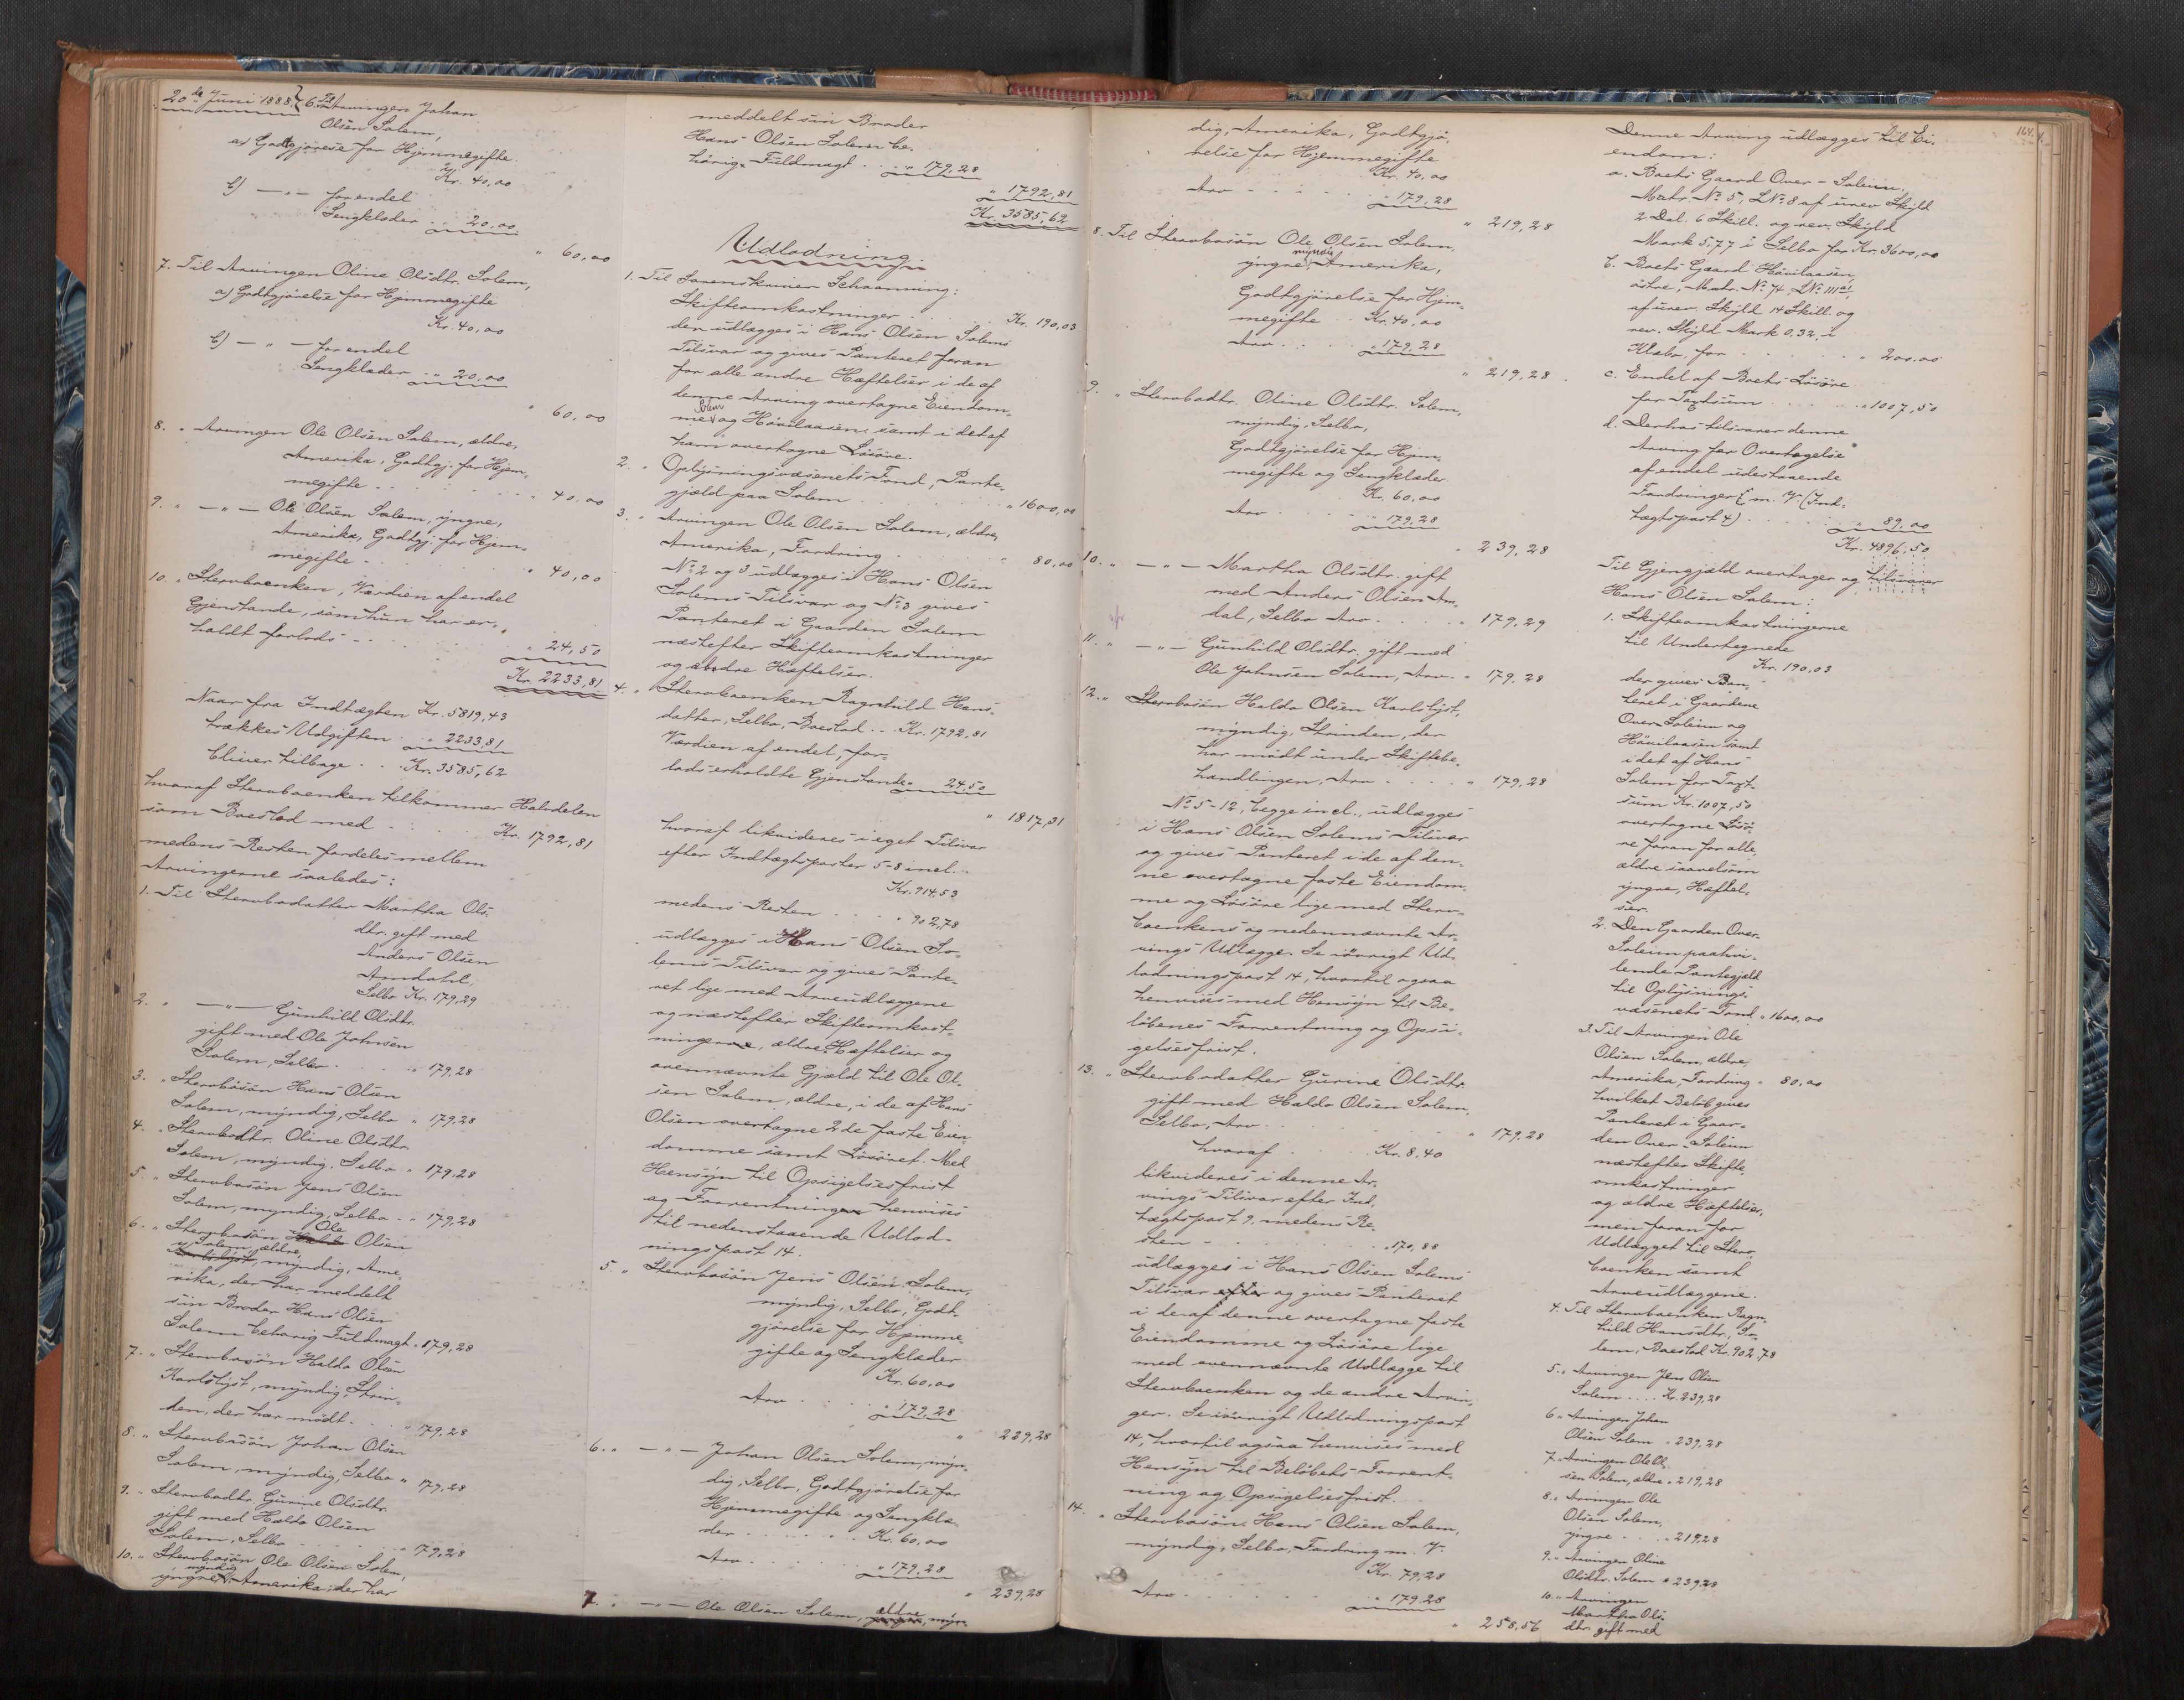 20de Juni 1888.
6. Til Arvingen Johan
Olsen Solem,
a) Godtgjørelse for Hjemmegifte
Kr. 40,00
b) — " — for endel
Sengklæder .. " 20,00
" 60,00
7. Til Arvingen Oline Olsdtr. Solem,
a) Godtgjörelse for Hjemmegifte
Kr. 40,00
b) — " — for endel
Sengklæder .. " 20,00
" 60,00
8. " Arvingen Ole Olsen Solem, ældre,
Amerika, Godtgj. for Hjem-
megifte . . . . " 40,00
9. " — " — Ole Olsen Solem, yngre,
Amerika, Godtgj. for Hjem-
megifte . . . . " 40,00
10. " Stervboenken, Værdien af endel
Gjenstande, som hun har er-
holdt forlods . . . " 24,50
Kr. 2233,81
Naar fra Indtægten Kr. 5819,43
trækkes Udgiften . . " 2233,81
bliver tilbage . . Kr. 3585,62
hvoraf Stervboenken tilkommer Halvdelen
som Boeslod med . . . Kr. 1792,81
medens Resten fordeles mellem
Arvingerne saaledes:
1. Til Stervbodatter Martha Ols-
dtr. gift med
Anders Olsen
Amdahl,
Selbo Kr. 179,29
2. " — " — Gunhild Olsdtr.
gift med Ole Johnsen
Solem, Selbo . . " 179,28
3. " Stervbosön Hans Olsen
Solem, myndig, Selbo " 179,28
4. " Stervbodtr. Oline Olsdtr.
Solem, myndig, Selbo " 179,28
5. " Stervbosön Jens Olsen
Solem, myndig, Selbo . . " 179,28
6. " Stervbosön Ole Olsen
Solem, ældre,
Karlslyst, myndig, Ame-
rika, der har meddelt
sin Broder Hans Olsen
Solem behörig Fuldmagt " 179,28
7. " Stervbosön Haldo Olsen
Karlslyst, myndig, Strin-
den, der har mödt . . . " 179,28
8. " Stervbosön Johan Olsen
Solem, myndig, Selbo " 179,28
9. " Stervbodtr. Gurine Olsdtr.
gift med Haldo Olsen
Solem, Selbo . . . " 179,28
10. " Stervbosön Ole Olsen Solem,
myndig
yngre, Amerika, der har
meddelt sin Broder
Hans Olsen Solem be-
hörig Fuldmagt . . . " 179,28
" 1792,81
Kr. 3585,62
Udlodning.
1. Til Sorenskriver Schaanning:
Skifteomkostninger . . . Kr. 190,03
den udlægges i Hans Olsen Solems
Tilsvar og gives Panteret foran
for alle andre Hæftelser i de af
denne Arving overtagne Eiendom-
Solem
me og Hövilaasen samt i det af
ham overtagne Lösöre.
2. " Oplysningsvæsenets Fond, Pante-
gjæld paa Solem . . . . " 1600,00
3. " Arvingen Ole Olsen Solem, ældre,
Amerika, Fordring . . . " 80,00
No 2 og 3 udlægges i Hans Olsen
Solems Tilsvar og No 3 gives
Panteret i Gaarden Solem
næstefter Skifteomkostninger
og ældre Hæftelser.
4. " Stervboenken Ragnhild Hans-
datter, Selbo, Boeslod . . . Kr. 1792,81
Værdien af endel, for-
lods erholdte Gjenstande " 24,50
" 1817,31
hvoraf likvideres i eget Tilsvar
efter Indtægtsposter 5-8 incl. . .
Kr. 914,53
medens Resten . . . . " 902,78
udlægges i Hans Olsen So-
lems Tilsvar og gives Pante-
ret lige med Arveudlæggene
og næstefter Skifteomkost-
ningerne, ældre Hæftelser og
ovennævnte Gjæld til Ole Ol-
sen Solem, ældre, i de af Hans
Olsen overtagne 2de faste Eien-
domme samt Lösöret. Med
Hensyn til Opsigelsesfrist
og Forrentningen henvises
til nedenstaaende Udlod-
ningspost 14.
5. " Stervbosön Jens Olsen Solem,
myndig, Selbo, Godt-
gjörelse for Hjemme-
gifte og Sengklæder
Kr. 60,00
Arv . . . . " 179,28
" 239,28
6. " — " — Johan Olsen Solem, myn-
dig, Selbo, Godtgjörelse for
Hjemmegifte og Sengklæ-
der . . . . . Kr. 60,00
Arv . . . . " 179,28
" 239,28
7. " — " — Ole Olsen Solem, ældre, myn-
dig, Amerika, Godtgjö-
relse for Hjemmegifte
Kr. 40,00
Arv . . . . " 179,28
" 219,28
8. Til Stervbosön Ole Olsen Solem,
myndig
yngre, Amerika,
Godtgjörelse for Hjem-
megifte . . Kr. 40,00
Arv . . . . " 179,28
" 219,28
9. " Stervbodtr. Oline Olsdtr. Solem,
myndig, Selbo,
Godtgjörelse for Hjem-
megifte og Sengklæder
Kr. 60,00
Arv . . . . " 179,28
" 239,28
10. " — " — Martha Olsdtr. gift
med Anders Olsen Am-
dal, Selbo Arv . . . " 179,29
11. " — " — Gunhild Olsdtr. gift med
Ole Johnsen Solem, Arv . . " 179,28
12. " Stervbosön Haldo Olsen Karlslyst,
myndig, Strinden, der
har mödt under Skiftebe-
handlingen, Arv . . . " 179,28
No 5-12, begge incl., udlægges
i Hans Olsen Solems Tilsvar
og gives Panteret i de af den-
ne overtagne faste Eiendom-
me og Lösöre lige med Sterv-
boenkens og nedennævnte Ar-
vings Udlægge. Se iövrigt Ud-
lodningspost 14, hvortil ogsaa
henvises med Hensyn til Be-
löbenes Forrentning og Opsi-
gelsesfrist.
13. " Stervbodatter Gurine Olsdtr.
gift med Haldo Olsen Solem,
Selbo, Arv . . . . . " 179,28
hvoraf . . . Kr. 8,40
likvideres i denne Ar-
vings Tilsvar efter Ind-
tægtspost 9, medens Re-
sten . . . . . " 170,88
udlægges i Hans Olsen Solems
Tilsvar efter og gives Panteret
i de af denne overtagne faste
Eiendomme og Lösöre lige
med ovennævnte Udlægge til
Stervboenken og de andre Arvin-
ger. Se iövrigt Udlodningspost
14, hvortil ogsaa henvises med
Hensyn til Belöbets Forrent-
ning og Opsigelsesfrist.
14. " Stervbosön Hans Olsen Solem,
myndig, Selbo, Fordring m. V.
Kr. 79,28
Arv . . . . " 179,28
" 258,56
164.
Denne Arving udlægges til Ei-
endom:
a. Boets Gaard Over-Soleim,
Matr. No 5, LNo 8 af urev. Skyld
2 Dal. 6 Skill. og rev. Skyld
Mark 5,77 i Selbo for Kr. 3600,00
b. Boets Gaard Hövilaasen,
östre, Matr. No 74, LNo 111a1,
af urev. Skyld 14 Skill. og
rev. Skyld Mark 0,32, i
Klæbo, for . . . . . " 200,00
c. Endel af Boets Lösöre
for Taxtsum . . . . " 1007,50
d. Derhos tilsvarer denne
Arving for Overtagelse
af endel udestaaende
Fordringer m. V. (Ind-
tægtspost 4) . . . . " 89,00
Kr. 4896,50
Til Gjengjæld overtager og tilsvarer
Hans Olsen Solem:
1. Skifteomkostningerne
til Undertegnede
Kr. 190,03
der gives Pan-
teret i Gaardene
Over-Soleim og
Hövilaasen samt
i det af Hans
Solem for Taxt-
sum Kr. 1007,50
overtagne Lösö-
re foran for alle,
ældre saavelsom
yngre, Hæftel-
ser.
2. Den Gaarden Over-
Soleim paahvi-
lende Pantegjæld
til Oplysnings-
væsenets Fond " 1600,00
3. Til Arvingen Ole
Olsen Solem, ældre,
Amerika, Fordring " 80,00
hvilket Belöb gives
Panteret i Gaar-
den Over-Soleim
næstefter Skifte-
omkostninger
og ældre Hæftelser,
men foran for
Udlægget til Sterv-
boenken samt
Arveudlæggene.
4. Til Stervboenken Ragn-
hild Hansdtr. So-
lem, Boeslod Kr. 902,78
5. " Arvingen Jens Olsen
Solem . . . . Kr. 239,28
6. " Arvingen Johan
Olsen Solem " 239,28
7. " Arvingen Ole Ol-
sen Solem, ældre " 219,28
8. " Arvingen Ole
Olsen Solem,
yngre . . . " 219,28
9. " Arvingen Oline
Olsdtr. Solem " 239,28
10. " Arvingen
Martha Ols-
dtr. gift med